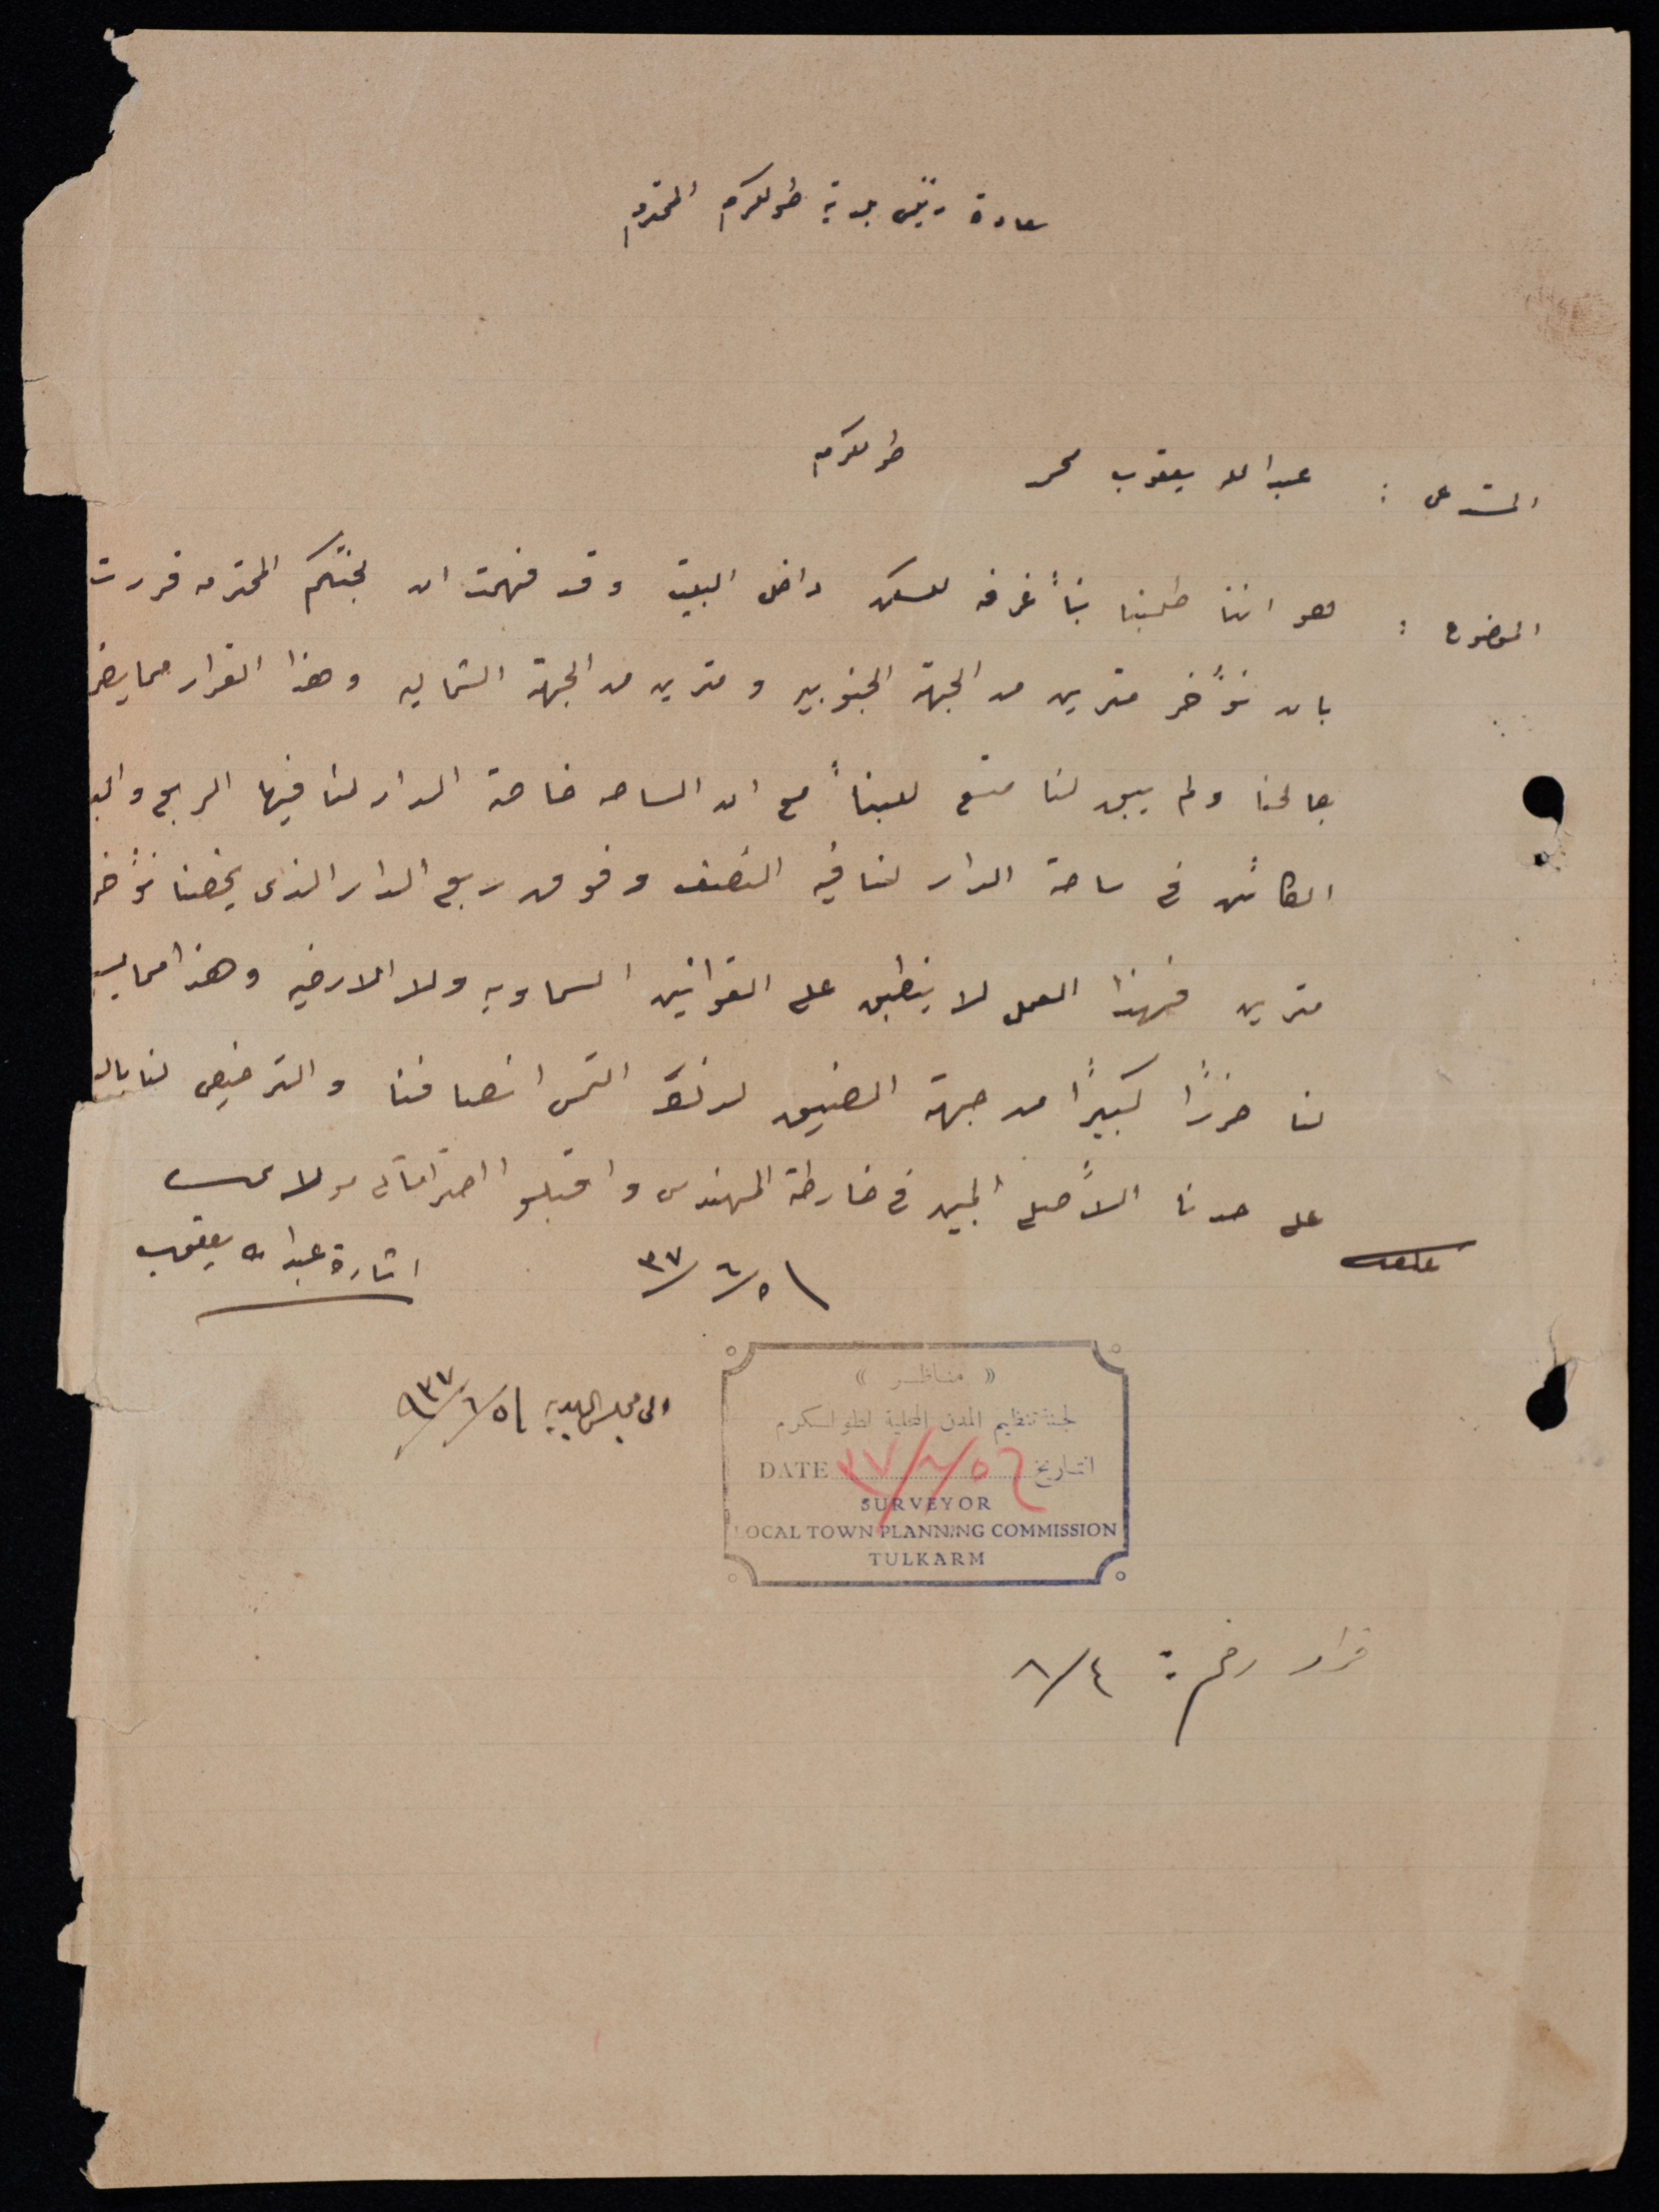 سعادة رئيس بلدية طولكرم المحترم
المستدعي : عبد الله يعقوب محمد طولكرم
الموضوع : هو اننا طلبنا بناً غرفه للسكن داخل البيت وقد فهمت ان لجنتكم المحترمه قررت
بان نؤخر مترين من الجهة الجنوبيه و مترين من الجهة الشماليه وهذا القرار مما يضر
بصالحنا ولم يبق لنا متسع للبناً مع ان الساحه خاصة الدار لنا فيها الربع
الكائن في ساحة الدار لنا فيه النصف وفوق ربع الدار الذي يخصنا نؤخر
مترين فهذا العمل لا ينطبق على القوانين السماويه ولا الارضيه وهذا مما
لنا ضررًا كبيرًا من جهة الضيق لذلك التمس انصافنا والترخيص لنا
على حدنا الأصلي المبين في خارطة المهندس واقبلوا احتراماتي مولاي
٣٧/٦/٥١
اشارة عبد الله يعقوب
الى مجلس البلديه
« مناظر »
لجنة تنظيم المدن المحلية لطولكرم
DATE ٣٧/٦/٥٦ التاريخ
SURVEYOR
LOCAL TOWN PLANNING COMMISSION
TULKARM
قرار رقم : ٨/٤